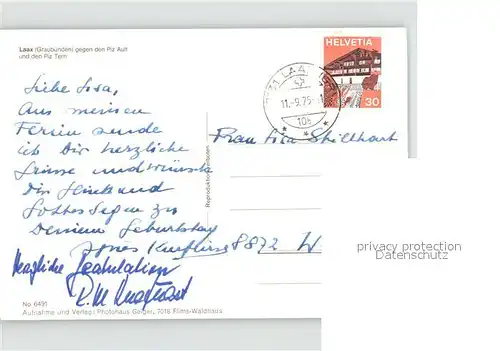 Laax (Graubünden) gegen den Piz Ault
und den Piz Terri
HELVETIA
30
7031 LAAX
11.-9.75
Liebe Lisa,
Aus meinen
Ferien sende
ich Dir herzliche
Grüsse und wünsche
Dir Glück und
Gottes Segen zu
Deinem Geburtstag
Herzliche Gratulation
Frau Lisa
8872 W
privacy protection
Datenschutz
No 6491
Aufnahme und Verlag: Photohaus Geiger, 7018 Flims-Waldhaus